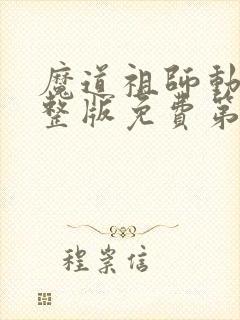 魔道祖師動
整版免費第
程崇信